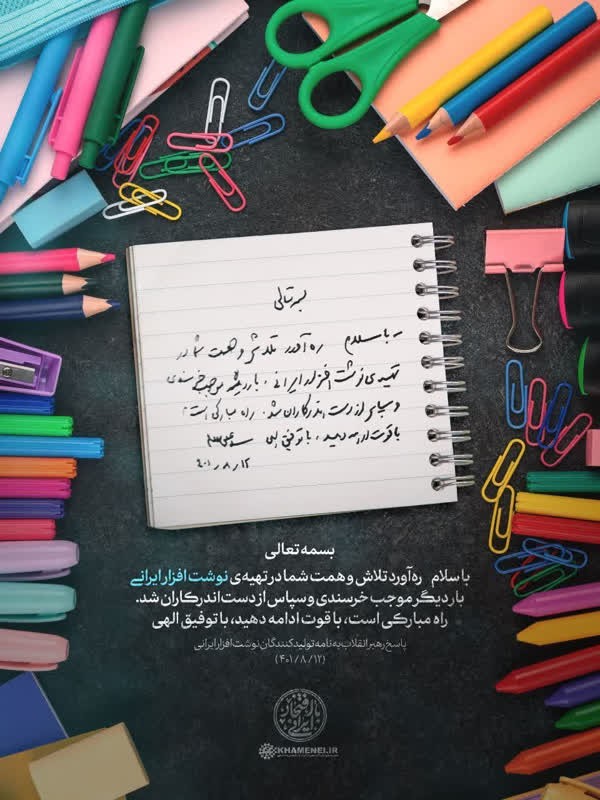 بسمه تعالی
- با سلام ره‌آورد تلاش و همت شما در
تهیه‌ی نوشت افزار ایرانی، بار دیگر موجب خرسندی
و سپاس از دست اندرکاران شد. راه مبارکی است
با قوت ادامه دهید، با توفیق الهی
۴۰۱٫۸٫۱۲
بسمه تعالی
با سلام ره‌آورد تلاش و همت شما در تهیه‌ی نوشت افزار ایرانی
بار دیگر موجب خرسندی و سپاس از دست‌اندرکاران شد.
راه مبارکی است، با قوت ادامه دهید، با توفیق الهی
پاسخ رهبر انقلاب به نامه تولیدکنندگان نوشت‌افزار ایرانی
(۴۰۱/۸/۱۲)
با افتخار ایرانی
KHAMENEI.IR